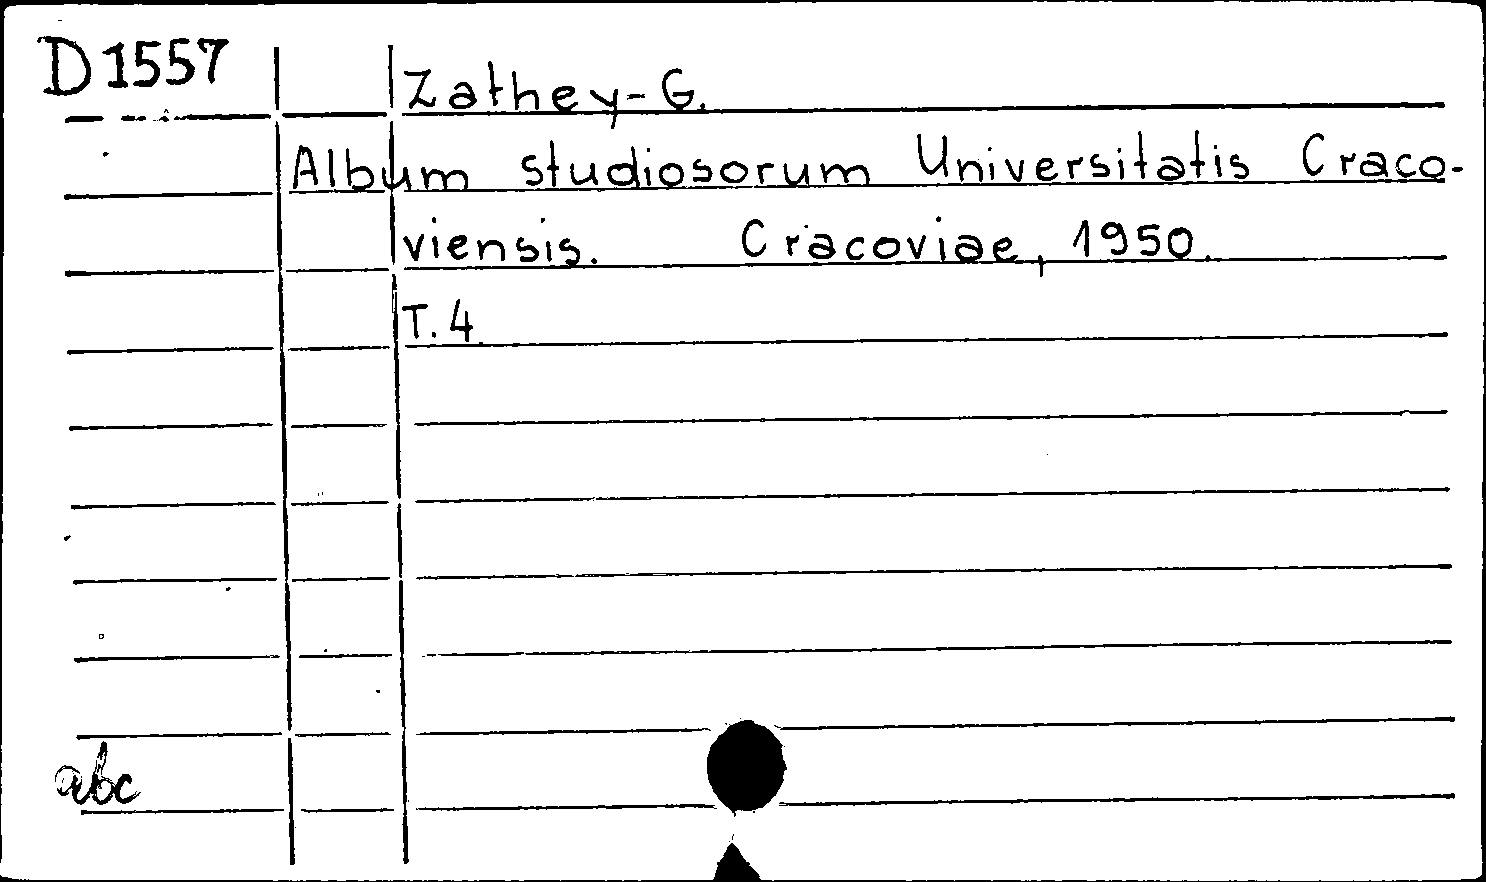 D1557
Zathey-G.
Album studiosorum Universitatis Craco-
viensis. Cracoviae, 1950.
T. 4.
abc